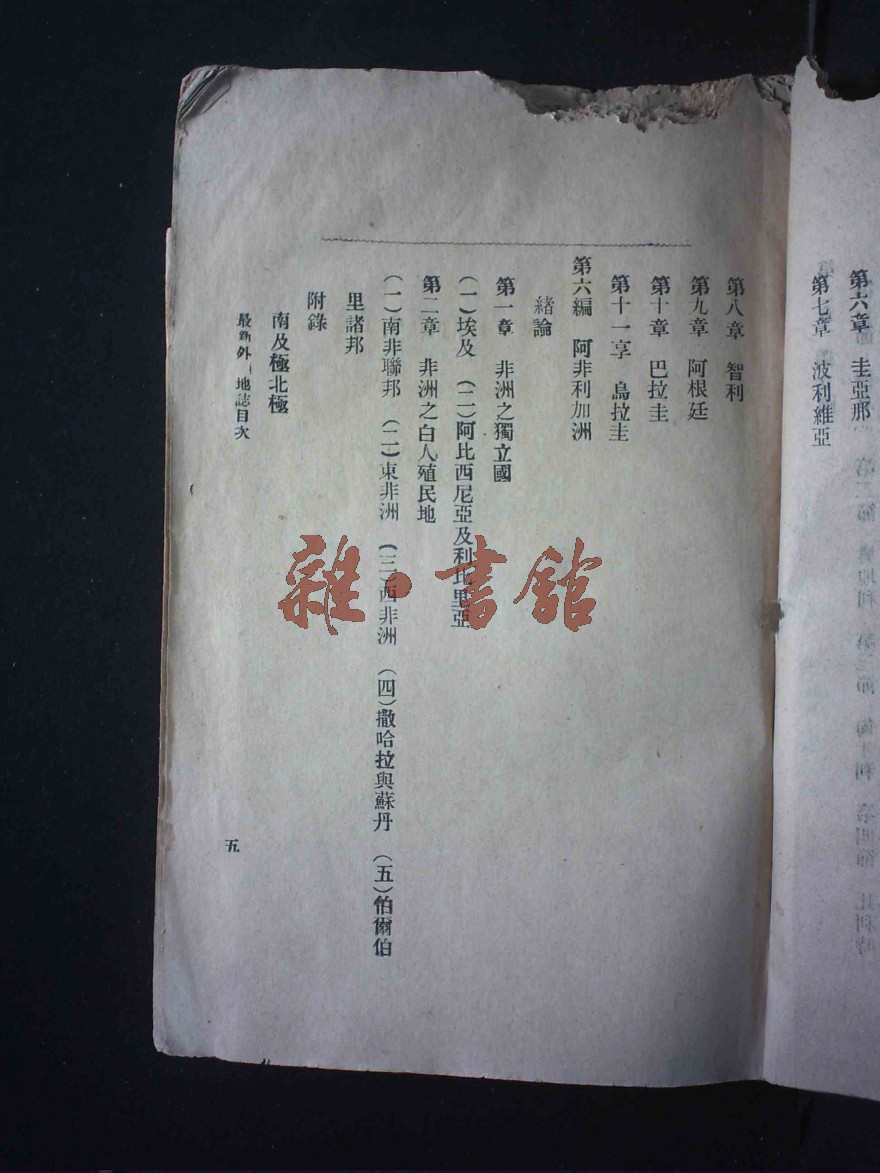 第六章　圭亞那
第七章　波利維亞
第八章　智利
第九章　阿根廷
第十章　巴拉圭
第十一享　烏拉圭
第六編　阿非利加洲
緒論
第一章　非洲之獨立國
（一）埃及　（二）阿比西尼亞及利比里亞
第二章　非洲之白人殖民地
（一）南非聯邦　（二）東非洲　（三）西非洲　（四）撒哈拉與蘇丹　（五）怕爾伯
里諸邦
附錄
南及極北極
最新外　地誌目次
五
雜·書館